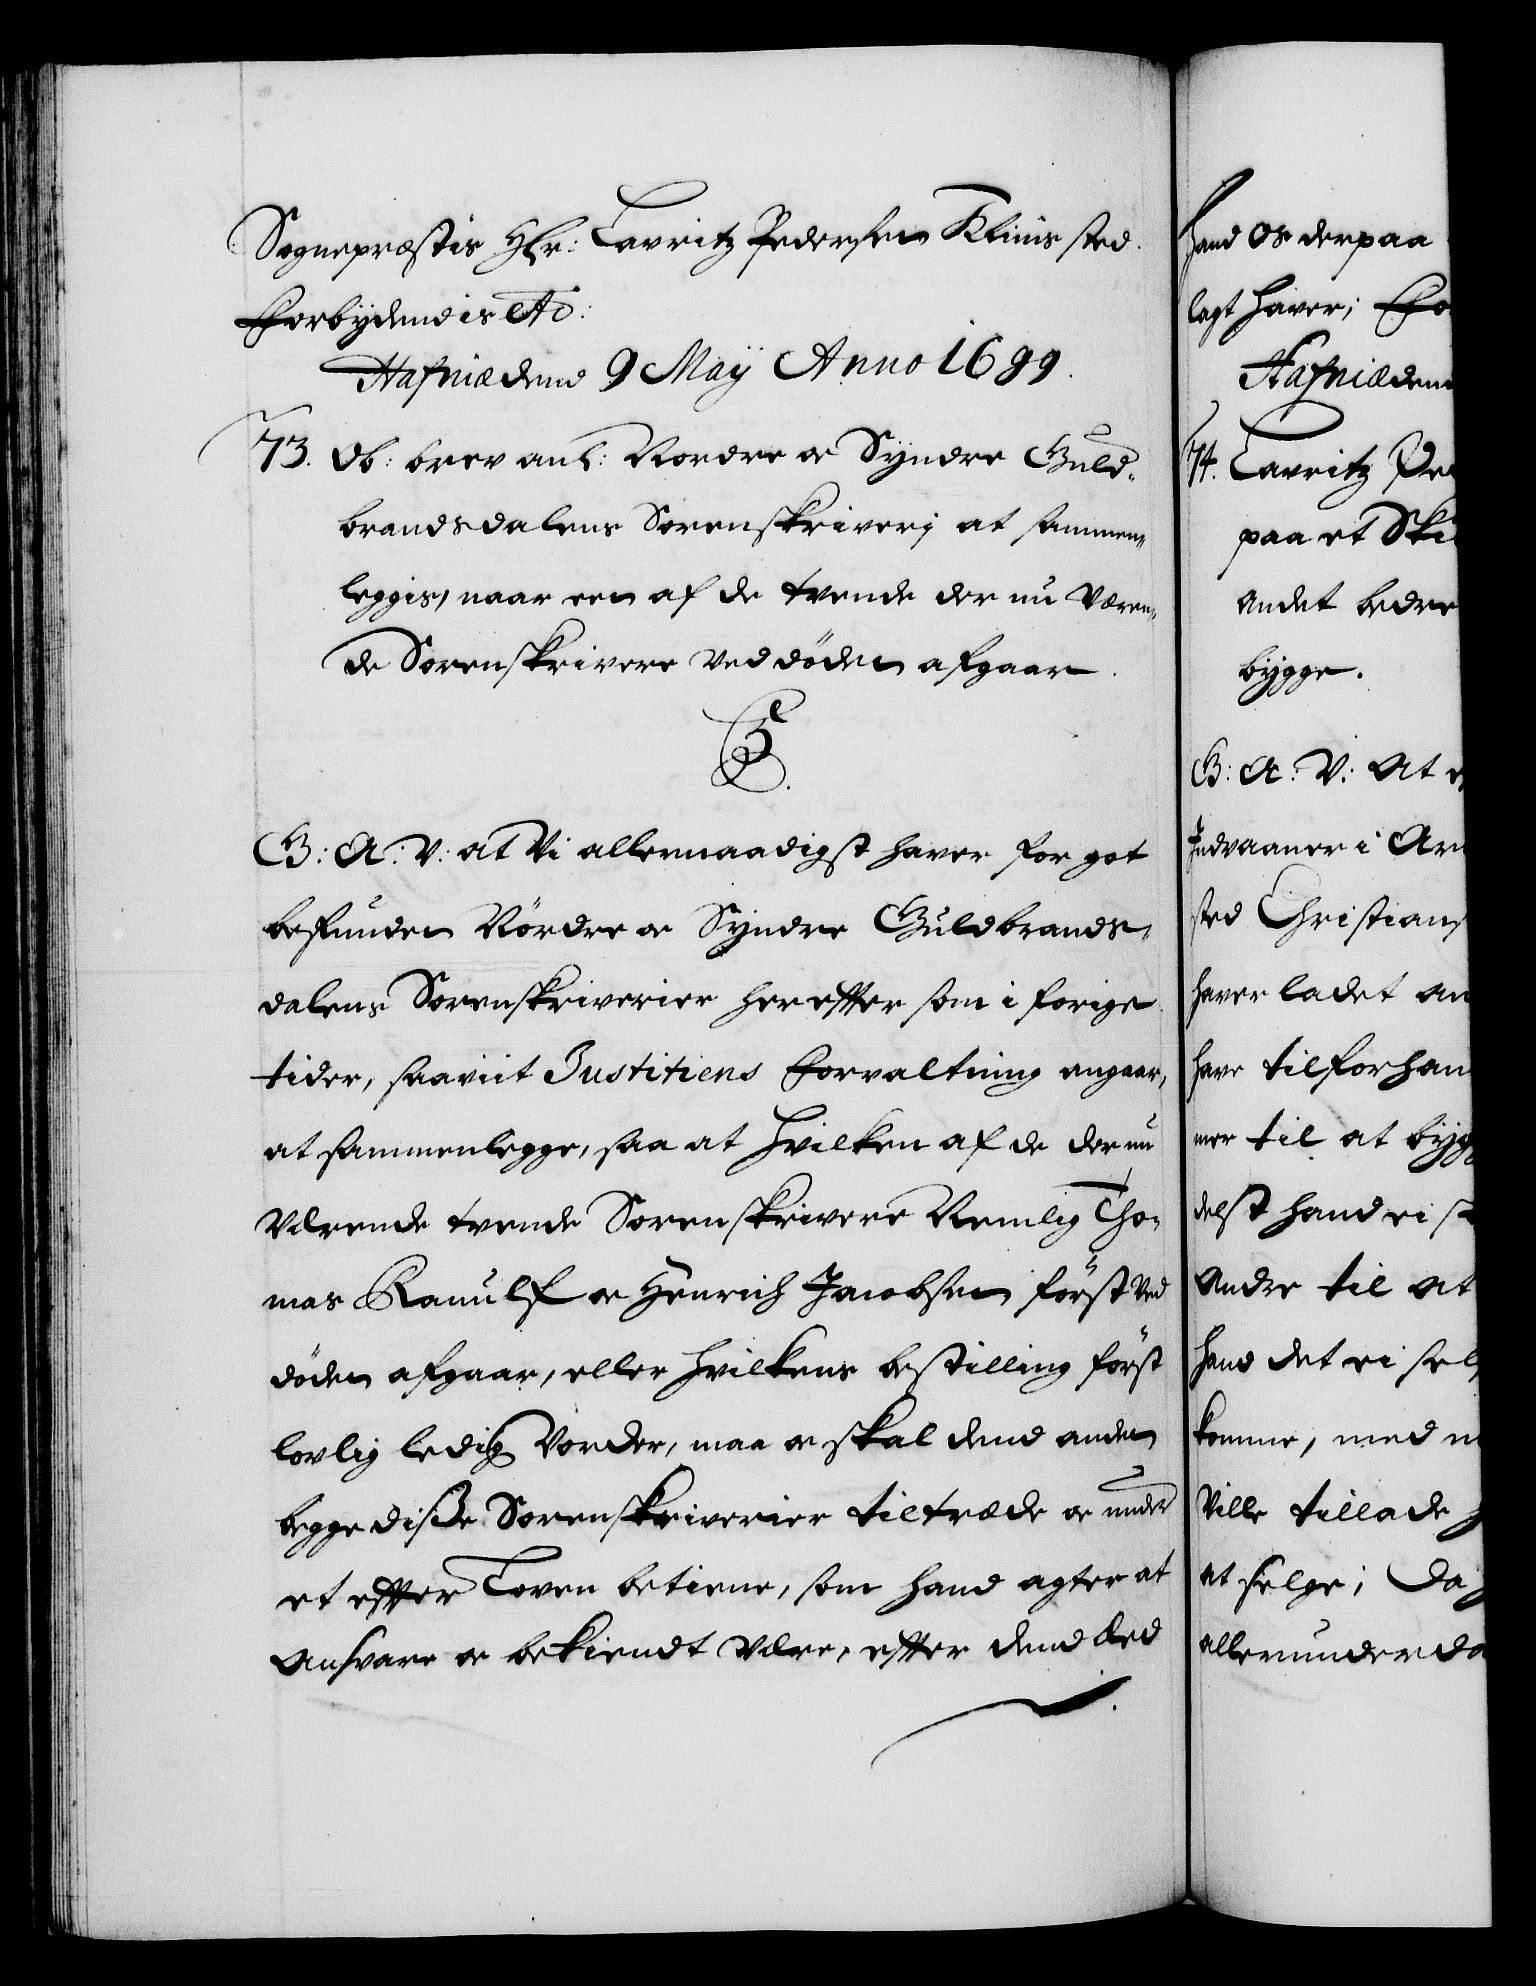 Sognepræstis Hr: Lavritz Pedersen Klims sted.
Forbydendis etc:
Hafniæ dend 9 Maÿ Anno 1699.
73. Ob: brev anl: Nordre oc Syndre Guld-
brandsdalens Sorenskriverj at sammen-
leggis, naar een af de tvende der nu Væren-
de Sorenskrivere ved döden afgaar.
G: A: V: at Vi allernaadigst haver for got
befunden Nördre oc Syndre Guldbrands-
dalens Sorenskriverier her effter som i forige
tider, saaviit Justitiens Forvaltning angaar,
at sammenlegge, saa at hvilken af de der nu
Værende tvende Sorenskrivere Nemlig Tho-
mas Ranulf oc Henrich Jacobsen först ved
döden afgaar, eller hvilkens bestilling först
lovlig ledig Vorder, maa oc skal dend anden
begge disse Sorenskriverier tiltræde oc under
et effter Loven betiene, som hand agter at
Ansvare oc bekiendt Være, effter dend Eed
hand Os derpaa
lagt haver; Fo
Hafniæ dend
74. Lavritz Pe
paa et Ski
andet bedre
bÿgge.
G: A: V: At
Indvaaner i Ar
sted Christians
haver ladet an
have tilforhan
mer til at bÿg
delst hand ei
Andre til at
hand det ei sel
komme, med
Ville tillade
at selge; Da
allerunderda